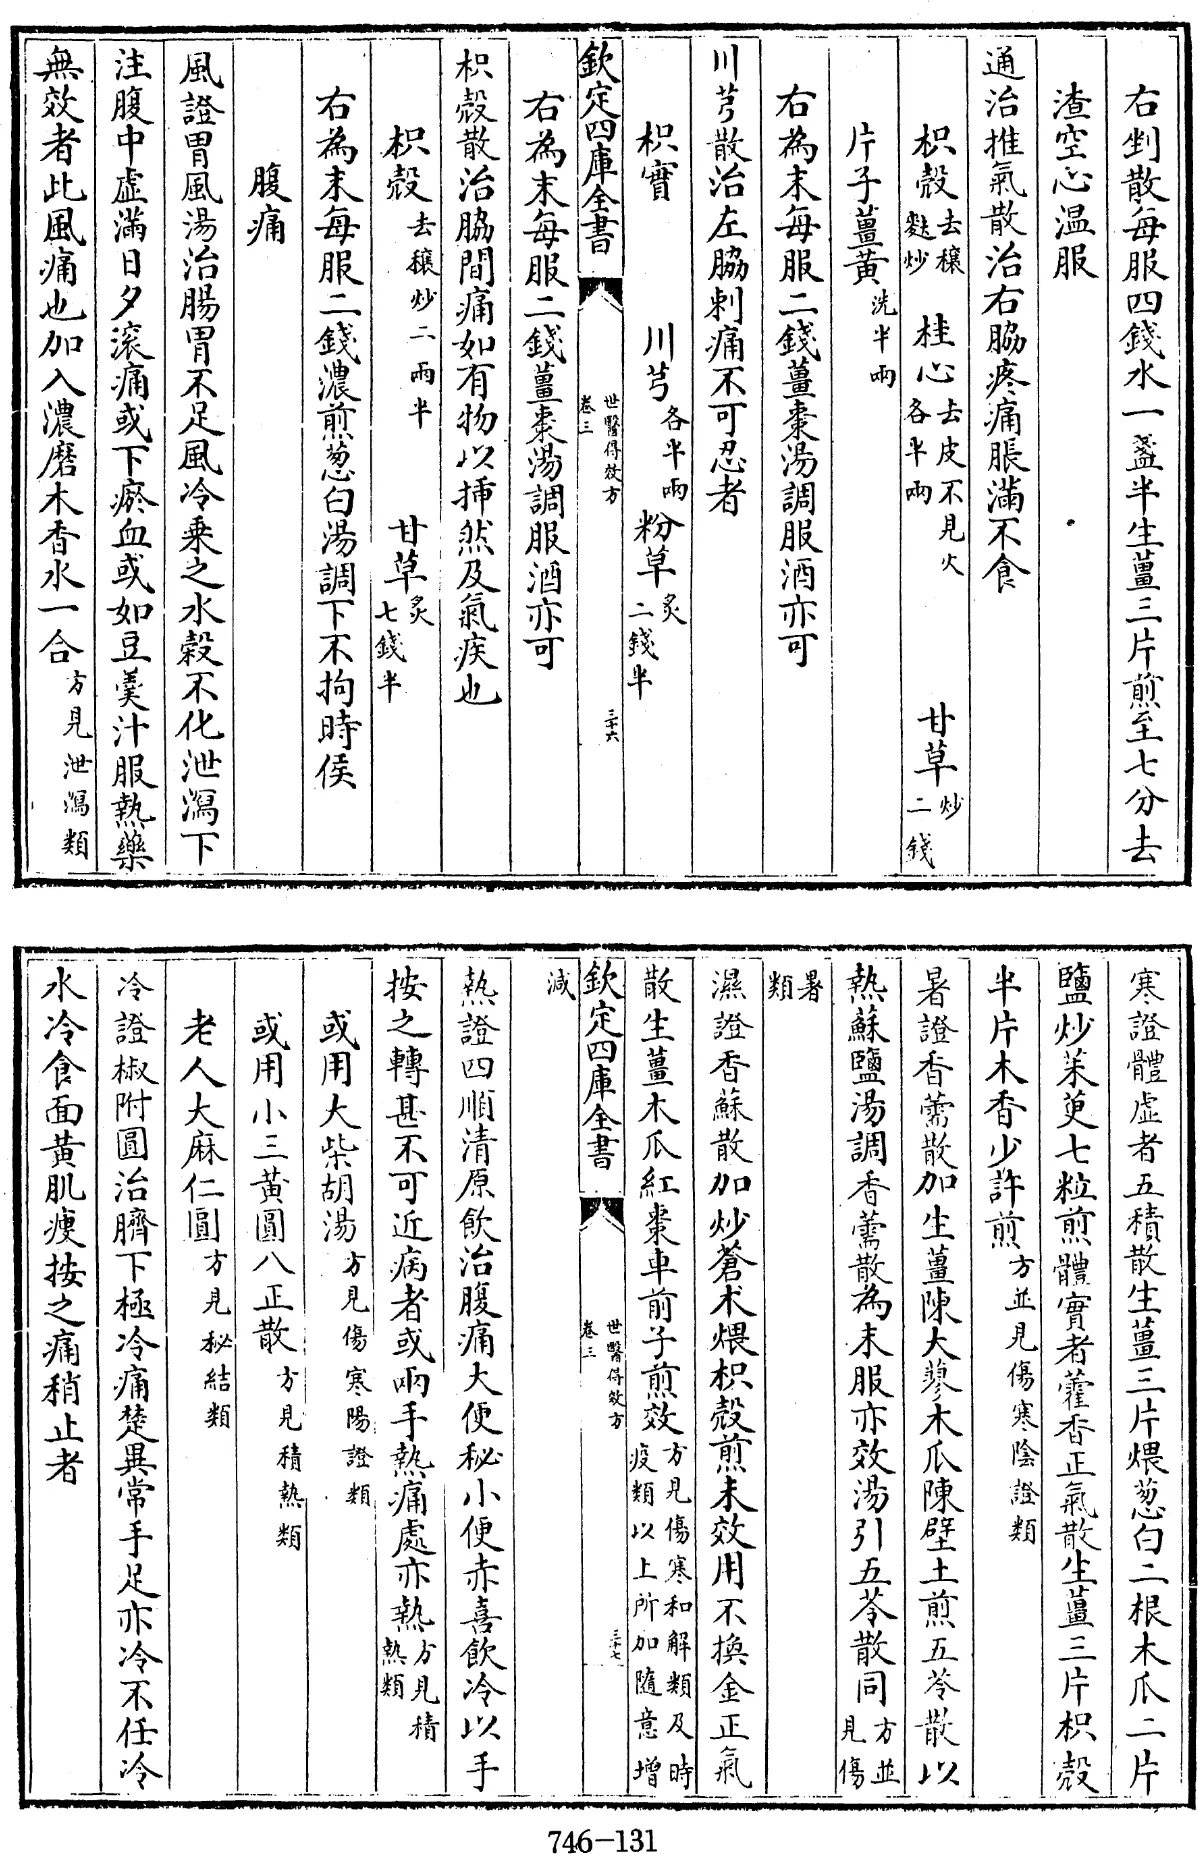 右剉散每服四錢水一盞半生薑三片煎至七分去
渣空心温服
通治推氣散治右脇疼痛脹滿不食
枳殻去穰麩炒 桂心去皮不見火各半兩 甘草炒二錢
片子薑黄洗半兩
右為末每服二錢薑棗湯調服酒亦可
川芎散治左脇刺痛不可忍者
枳實 川芎各半兩 粉草炙二錢半
欽定四庫全書 世醫得效方卷三 三十六
右為末每服二錢薑棗湯調服酒亦可
枳殻散治脇間痛如有物以揷然及氣疾也
枳殻去穰炒二兩半 甘草炙七錢半
右為末每服二錢濃煎葱白湯調下不拘時侯
腹痛
風證胃風湯治腸胃不足風冷乘之水榖不化泄瀉下
注腹中虚滿日夕滚痛或下瘀血或如豆羮汁服熱藥
無效者此風痛也加入濃磨木香水一合方見泄瀉類
寒證體虚者五積散生薑三片煨葱白二根木瓜二片
鹽炒茱萸七粒煎體實者藿香正氣散生薑三片枳殻
半片木香少許煎方並見傷寒陰證類
暑證香薷散加生薑陳大蓼木瓜陳壁土煎五苓散以
熱蘇鹽湯調香薷散為末服亦效湯引五苓散同方並見傷
暑類
濕證香蘇散加炒蒼术煨枳殻煎末效用不換金正氣
散生薑木瓜紅棗車前子煎效方見傷寒和解類及時疫類以上所加隨意增
欽定四庫全書 世醫得效方卷三 三十七
減
熱證四順清原飲治腹痛大便秘小便赤喜飲冷以手
按之轉甚不可近病者或兩手熱痛處亦熱方見積熱類
或用大柴胡湯方見傷寒陽證類
或用小三黄圓八正散方見積熱類
老人大麻仁圓方見秘結類
冷證椒附圓治臍下極冷痛楚異常手足亦冷不任冷
水冷食面黄肌瘦按之痛稍止者
746-131